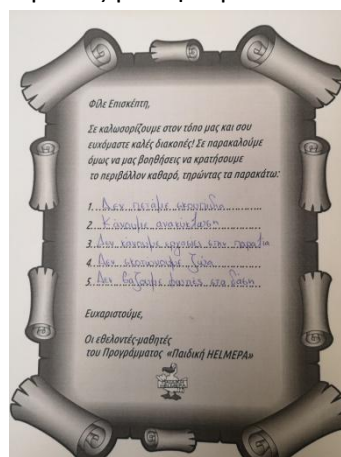 Φίλε Επισκέπτη,
Σε καλωσορίζουμε στον τόπο μας και σου
ευχόμαστε καλές διακοπές! Σε παρακαλούμε
όμως να μας βοηθήσεις να κρατήσουμε
το περιβάλλον καθαρό, τηρώντας τα παρακάτω:
1. Δεν πετάμε σκουπίδια
2. Κάνουμε ανακύκλωση
3. Δεν κάνουμε στην παραλία
4. Δεν σκοτώνουμε ζώα
5. Δεν βάζουμε φωτιές στα δάση
Ευχαριστούμε,
Οι εθελοντές-μαθητές
του Προγράμματος «Παιδική HELMEPA»